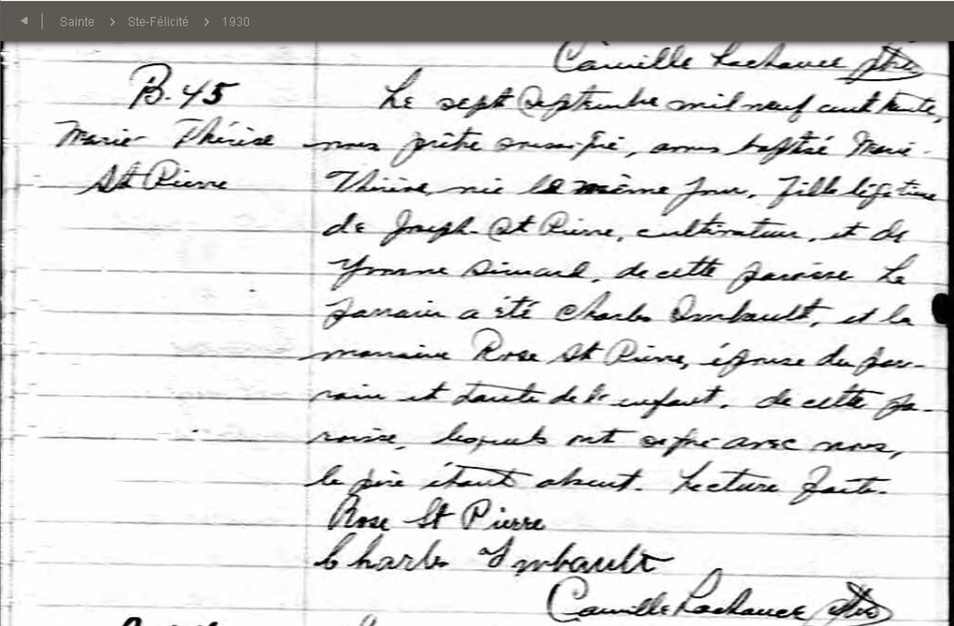 Sainte > Ste-Félicité > 1930
Camille Lachance ptre
B. 45
Marie Thérèse
St Pierre
Le sept Septembre mil neuf cent trente,
nous prêtre soussigné, avons baptisé Marie-
Thérèse, née le même jour, fille légitime
de Joseph St Pierre, cultivateur, et de
Yvonne Simard, de cette paroisse Le
parrain a été Charles Imbault, et la
marraine Rose St Pierre, épouse du par-
rain et tante de l'enfant, de cette pa-
roisse, lesquels ont signé avec nous,
le père étant absent. Lecture faite.
Rose St Pierre
Charles Imbault
Camille Lachance ptre